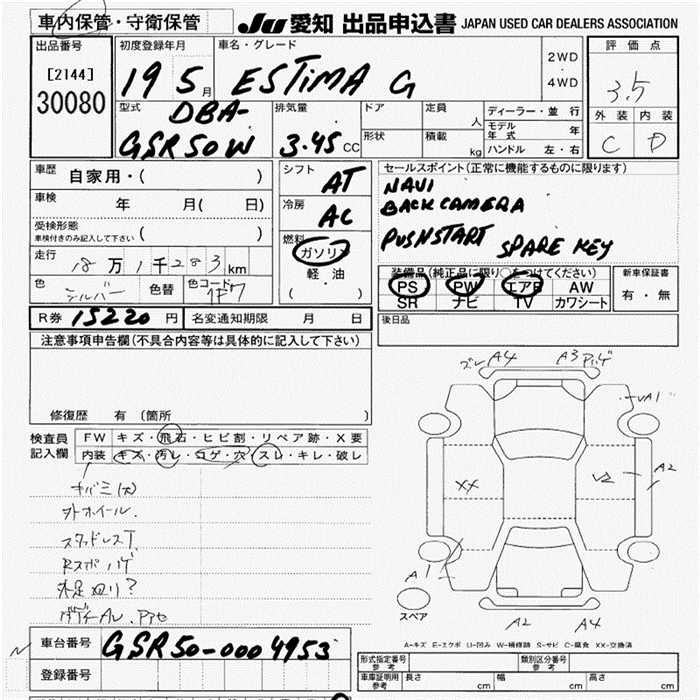 車内保管・守衛保管 Ju 愛知 出品申込書 JAPAN USED CAR DEALERS ASSOCIATION
出品番号 初度登録年月 車名・グレード 評価点
[2144] 19 5月 ESTIMA G 2WD ・ 4WD 3.5
30080
型式 排気量 ドア 定員 人 ディーラー・並行 外装 内装
DBA-GSR50W 3.45 CC 形状 積載 kg モデル年式 年 C D
ハンドル 左・右
車歴 自家用・( ) シフト AT セールスポイント(正常に機能するものに限ります)
車検 年 月( 日) 冷房 AC NAVI
BACK CAMERA
受検形態 車検付きのみ記入して下さい ( ) 燃料 ガソリン PUSHSTART SPARE KEY
走行 18万1千283km 軽油 装備品(純正品に限り○をつけてください) 新車保証書
色 シルバー 色替 色コード 1F7 ( ) PS PW エアB AW 有・無
SR ナビ TV カワシート
R券 15220円 名変通知期限 月 日 後日品
注意事項申告欄(不具合内容等は具体的に記入して下さい)
ズレ A4 A3
修復歴 有 (箇所
検査員記入欄 FW キズ・飛石・ヒビ割・リペア跡・X要
内装 キズ・汚レ・コゲ・穴・スレ・キレ・破レ
A2
XX
外ホイール
スタッドレスT
A1
スペア
A2 A4
A=キズ E=エクボ U=凹み W=補修跡 S=サビ C=腐食 XX=交換済
車台番号 GSR50-0004953
登録番号
形式指定番号 参考 類別区分番号 参考
車庫証明用 参考 長さ cm 幅 cm 高さ cm